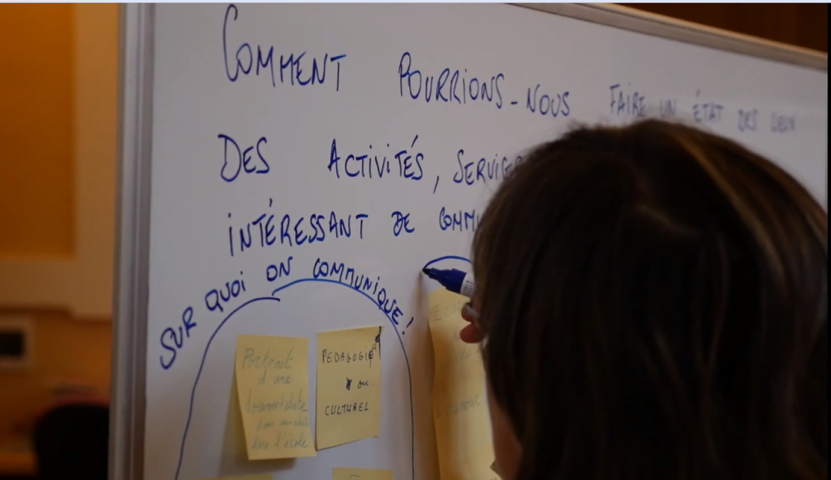 COMMENT POURRIONS-NOUS FAIRE UN ÉTAT DES LIEUX
DES ACTIVITÉS,
INTÉRESSANT DE
SUR QUOI ON COMMUNIQUE!
d'une
dans l'école
PEDAGOGIE
ou
CULTUREL